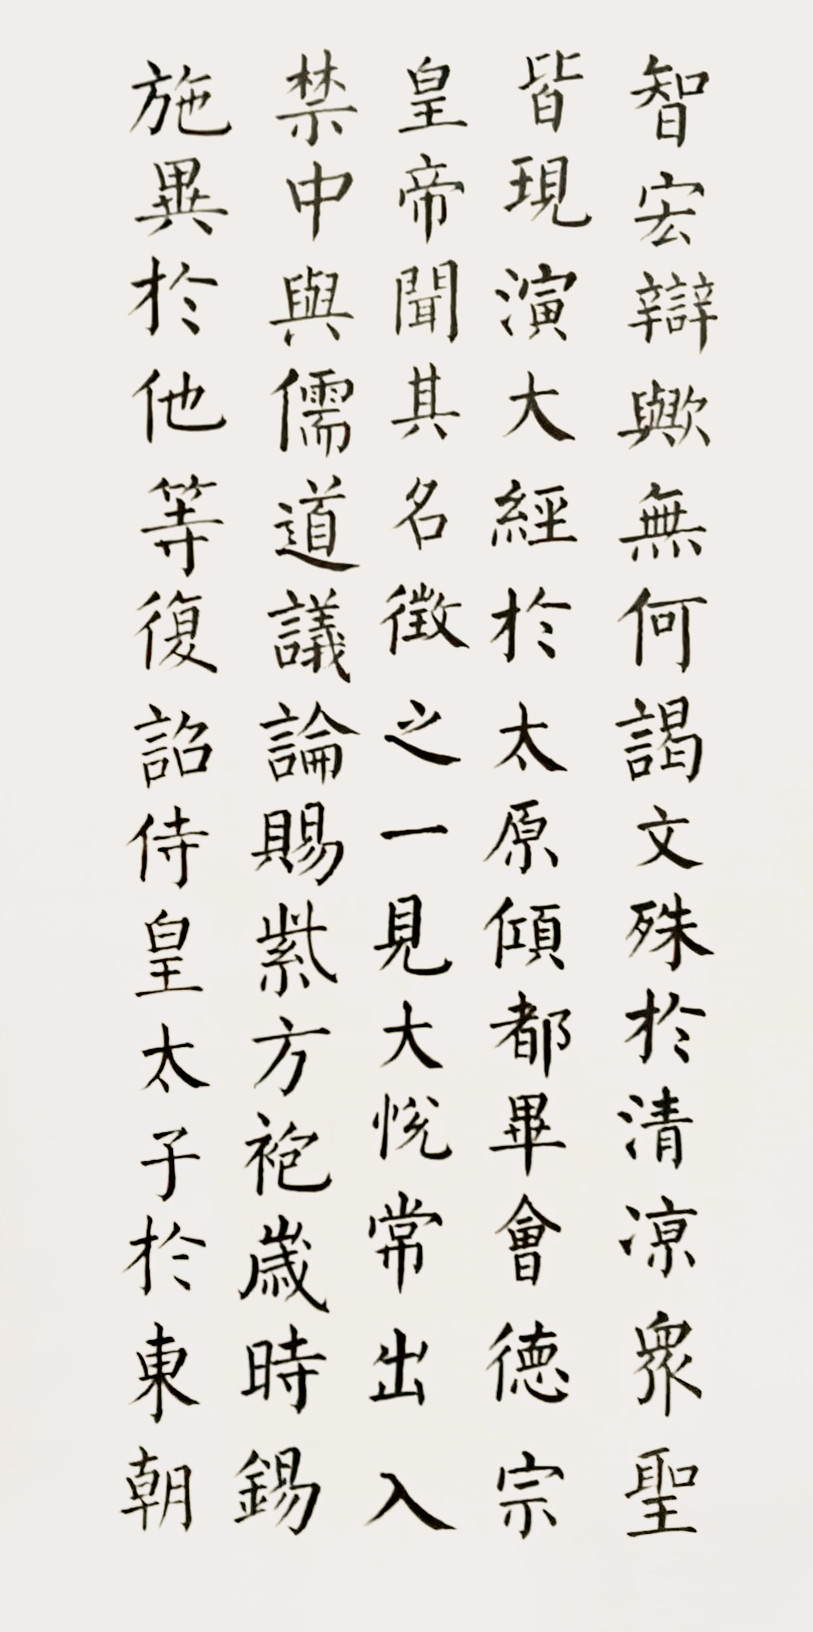 智宏辯歟無何謁文殊於清涼衆聖
皆現演大經於太原傾都畢會德宗
皇帝聞其名徵之一見大悅常出入
禁中與儒道議論賜紫方袍歲時錫
施異於他等復詔侍皇太子於東朝